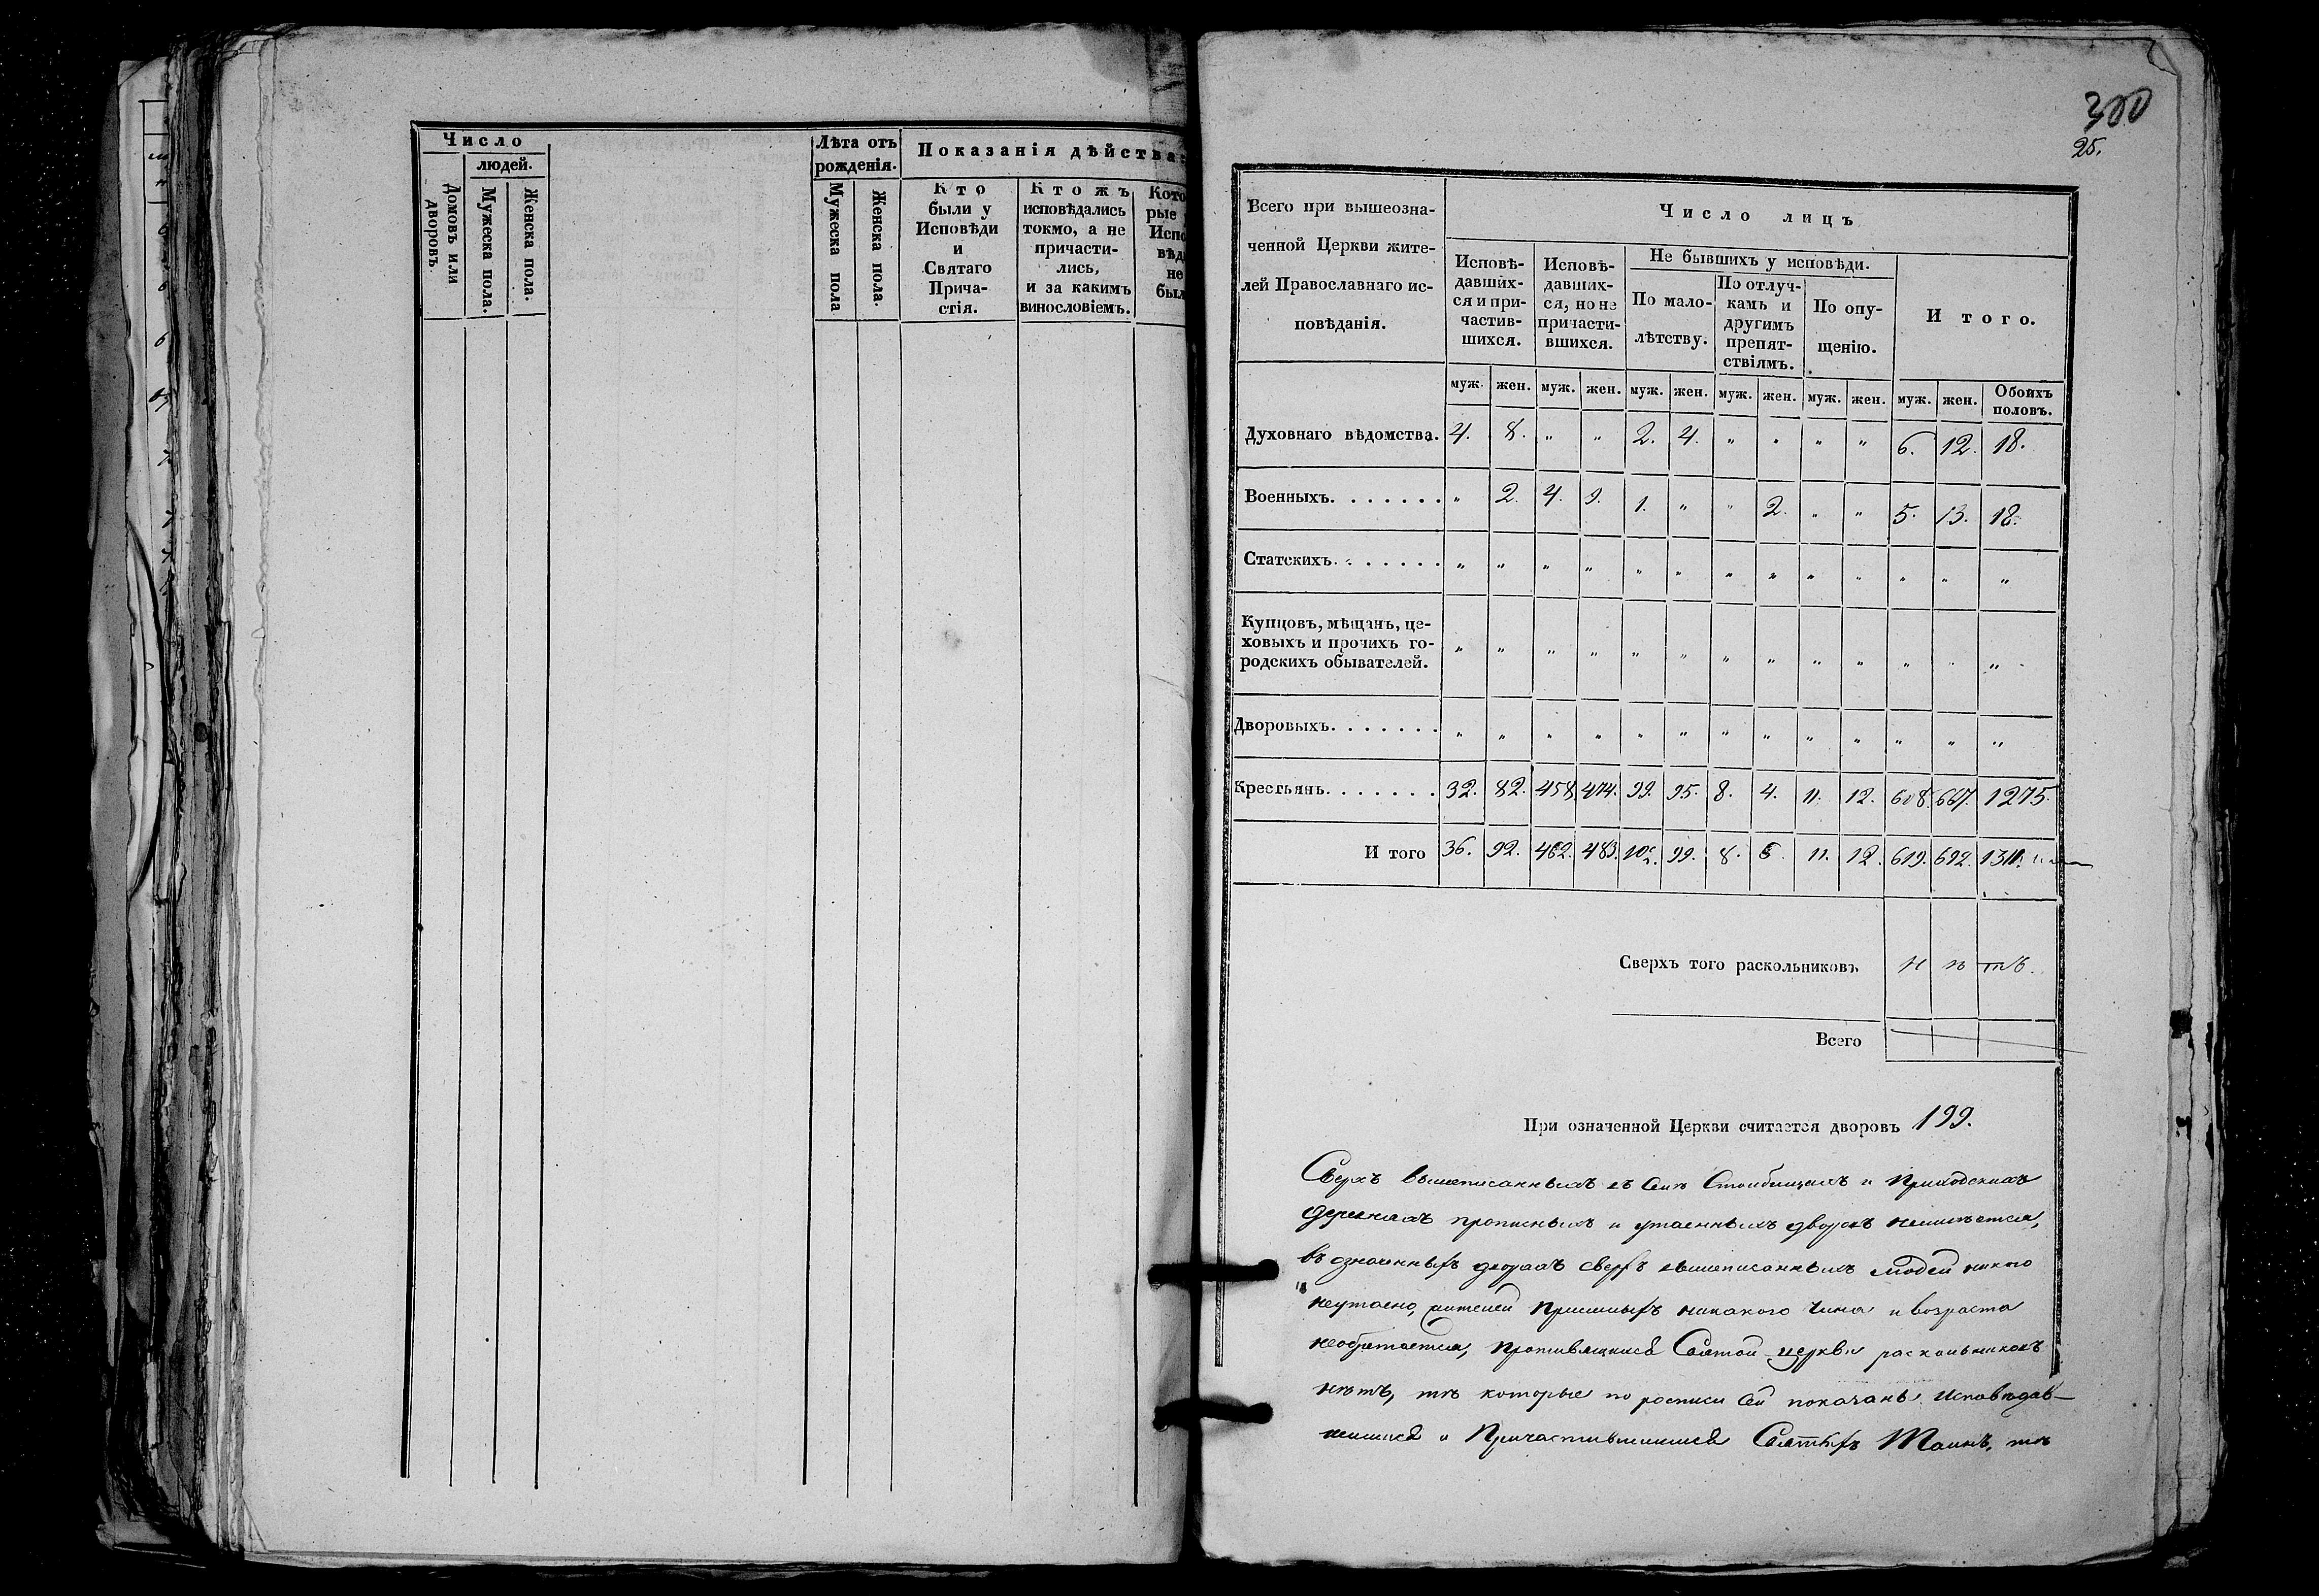 Число
людей.
Домовъ или дворовъ.
Мужеска пола.
Женска пола.
Лѣта отъ рожденія.
Мужеска пола
Женска пола.
Показанія дѣйства
Кто
были у
Исповѣди
и
Святаго
Прича-
стія.
Ктожъ
исповѣдались
токмо, а не
причасти-
лись,
и за какимъ
винословіемъ.
Кото
рые
Испо
вѣд
не
был
300
25.
Всего при вышеозна-
ченной Церкви жите-
лей Православнаго ис-
повѣданія.
Число лицъ
Исповѣ-
давших-
ся и при-
частив-
шихся.
Исповѣ-
давших-
ся, но не
причасти-
вшихся.
Не бывшихъ у исповѣди.
По мало-
лѣтству.
По отлуч-
камъ и
другимъ
препят-
ствіямъ.
По опу-
щенію.
И того.
муж. жен. муж. жен. муж. жен. муж. жен. муж. жен. муж. жен. Обоихъ половъ.
Духовнаго вѣдомства. 4. 8. " " 2. 4. " " " " 6. 12. 18.
Военныхъ. . . . . . . " 2. 4. 9. 1. " " 2. " " 5. 13. 18.
Статскихъ. . . . . . . " " " " " " " " " " " " "
Купцовъ, мѣщанъ, це-
ховыхъ и прочихъ го-
родскихъ обывателей. " " " " " " " " " " " " "
Дворовыхъ. . . . . . . " " " " " " " " " " " " "
Крестьянъ. . . . . . . 32. 82. 458. 474. 99. 95. 8. 4. 11. 12. 608. 667. 1275.
И того 36. 92. 462. 483. 102. 99. 8. 6. 11. 12. 619. 692. 1311.
Сверхъ того раскольниковъ нѣтъ.
Всего
При означенной Церкви считается дворовъ 199.
Сверхъ вышеписанныхъ въ семъ и Приходскихъ
деревняхъ прописныхъ и утаенныхъ дворовъ неимѣется,
въ означенныхъ дворахъ сверхъ вышеписанныхъ людей никто
неутаено, жителей Пришлыхъ никакого чина и возраста
необрѣтается, противящихся Святой церкви раскольниковъ
нѣтъ, тѣ которые по росписи сей показаны Исповѣдав-
шимися и Причастившимися Святыхъ Таинъ, тѣ